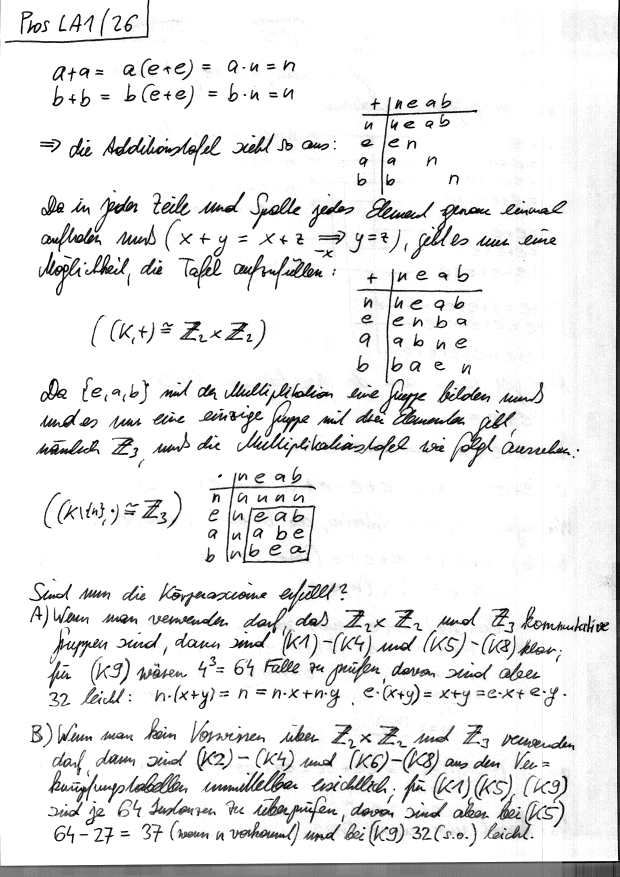 Pros LA1/26
a+a = a(e+e) = a·n = n
b+b = b(e+e) = b·n = n
+ | n e a b
n | n e a b
e | e n
a | a   n
b | b     n
⇒ die Additionstafel sieht so aus:
Da in jeder Zeile und Spalte jedes Element genau einmal
auftreten muß (x+y = x+z ⇒ y=z), gibt es nur eine
-x
Möglichkeit, die Tafel aufzufüllen:
+ | n e a b
n | n e a b
e | e n b a
a | a b n e
b | b a e n
((K,+) ≅ ℤ₂ × ℤ₂)
Da {e,a,b} mit der Multiplikation eine Gruppe bilden muß
und es nur eine einzige Gruppe mit drei Elementen gibt,
nämlich ℤ₃, muß die Multiplikationstafel wie folgt aussehen:
· | n e a b
n | n n n n
e | n e a b
a | n a b e
b | n b e a
((K\{n},·) ≅ ℤ₃)
Sind nun die Körperaxiome erfüllt?
A) Wenn man verwenden darf, daß ℤ₂ × ℤ₂ und ℤ₃ kommutative
Gruppen sind, dann sind (K1)–(K4) und (K5)–(K8) klar;
für (K9) wären 4³ = 64 Fälle zu prüfen, davon sind aber
32 leicht: n·(x+y) = n = n·x+n·y, e·(x+y) = x+y = e·x+e·y.
B) Wenn man kein Vorwissen über ℤ₂ × ℤ₂ und ℤ₃ verwenden
darf, dann sind (K2)–(K4) und (K6)–(K8) aus den Ver=
knüpfungstabellen unmittelbar ersichtlich; für (K1), (K5), (K9)
sind je 64 Instanzen zu überprüfen, davon sind aber bei (K5)
64 – 27 = 37 (wenn n vorkommt) und bei (K9) 32 (s.o.) leicht.